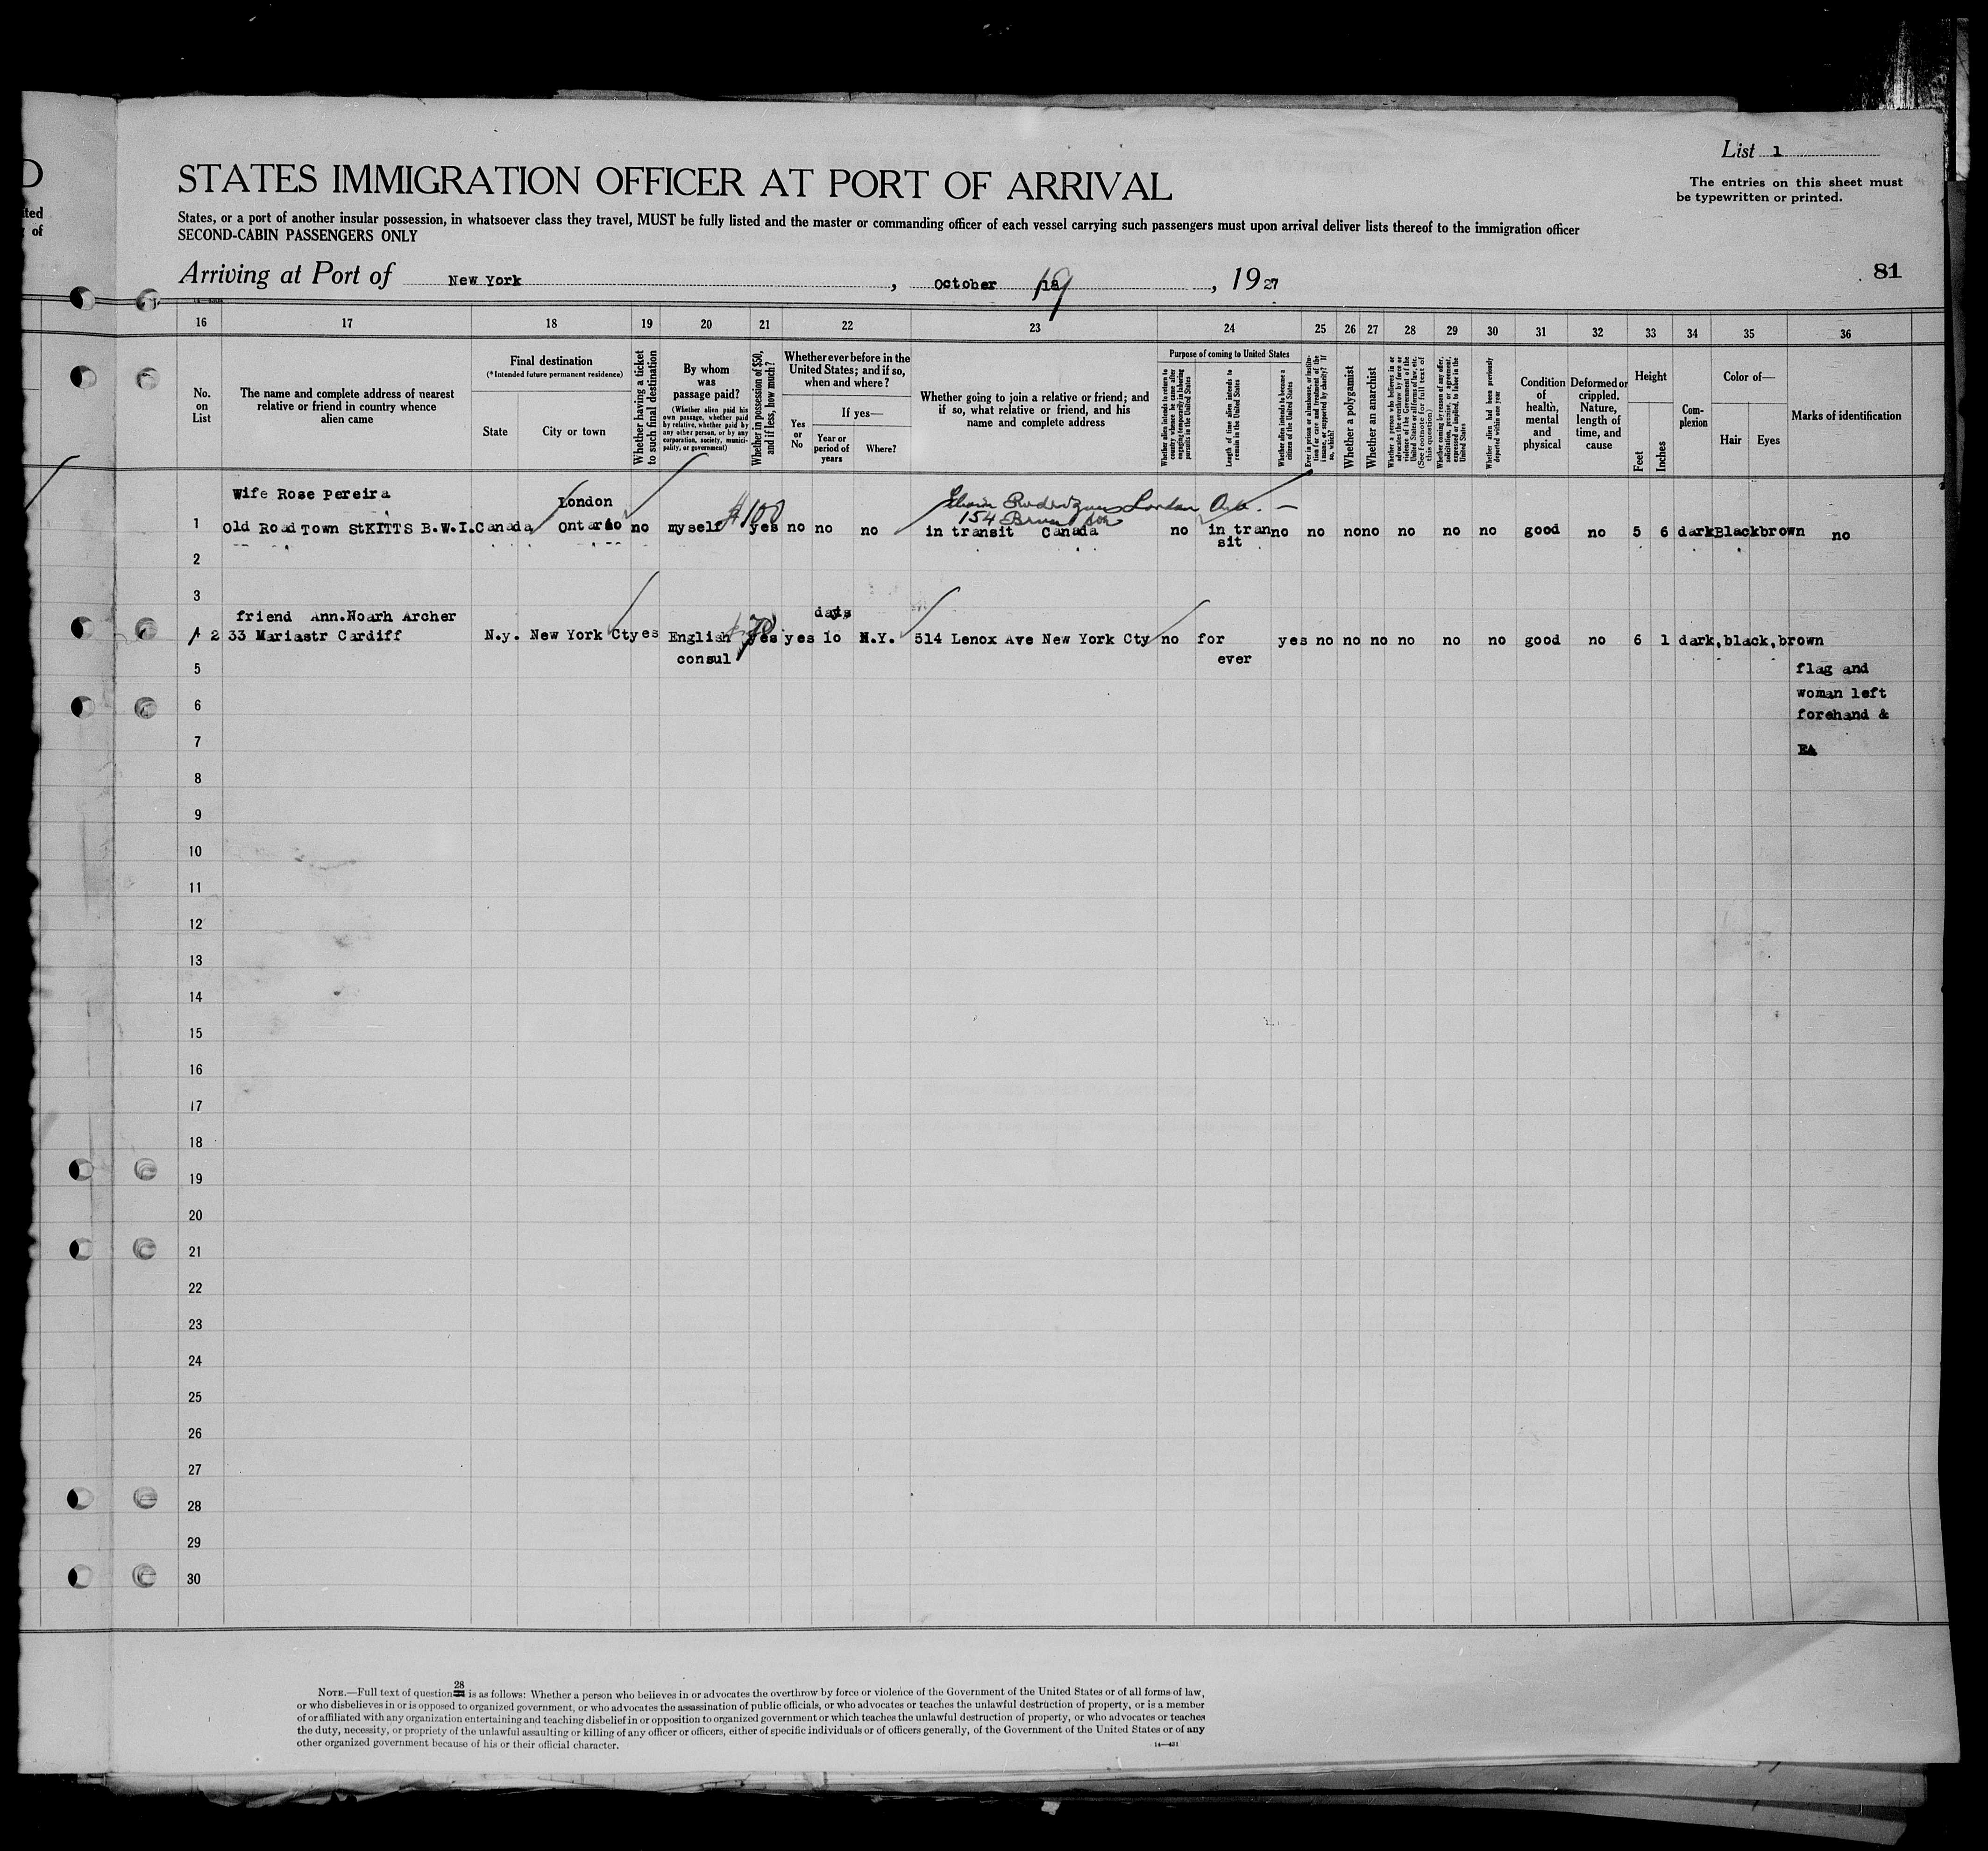 D
ited
of
List 1
STATES IMMIGRATION OFFICER AT PORT OF ARRIVAL
The entries on this sheet must
be typewritten or printed.
States, or a port of another insular possession, in whatsoever class they travel, MUST be fully listed and the master or commanding officer of each vessel carrying such passengers must upon arrival deliver lists thereof to the immigration officer
SECOND-CABIN PASSENGERS ONLY
Arriving at Port of New York, October 19, 1927
81
16 17 18 19 20 21 22 23 24 25 26 27 28 29 30 31 32 33 34 35 36
No.
on
List
The name and complete address of nearest
relative or friend in country whence
alien came
Final destination
(*Intended future permanent residence)
State
City or town
Whether having a ticket
to such final destination
By whom
was
passage paid?
(Whether alien paid his
own passage, whether paid
by relative, whether paid by
any other person, or by any
corporation, society, munici-
pality, or government)
Whether in possession of $50,
and if less, how much?
Whether ever before in the
United States; and if so,
when and where?
Yes
or
No
If yes—
Year or
period of
years
Where?
Whether going to join a relative or friend; and
if so, what relative or friend, and his
name and complete address
Purpose of coming to United States
Whether alien intends to return to
country whence he came after
engaging temporarily in laboring
pursuits in the United States
Length of time alien intends to
remain in the United States
Whether alien intends to become a
citizen of the United States
Ever in prison or almshouse, or institu-
tion for care and treatment of the
insane, or supported by charity? If
so, which?
Whether a polygamist
Whether an anarchist
Whether a person who believes in or
advocates the overthrow by force or
violence of the Government of the
United States or all forms of law, etc.
(See footnote for full text of
this question)
Whether coming by reason of any offer,
solicitation, promise, or agreement,
expressed or implied, to labor in the
United States
Whether alien had been previously
deported within one year
Condition
of
health,
mental
and
physical
Deformed or
crippled.
Nature,
length of
time, and
cause
Height
Feet
Inches
Com-
plexion
Color of—
Hair
Eyes
Marks of identification
Wife Rose Pereira
London
London Ont. —
154
1 Old Road Town StKITTS B.W.I. Canada Ontario no myself $100 yes no no no in transit Canada no in tran no no no no no no no good no 5 6 dark Black brown no
sit
2
3
friend Ann.Noarh Archer
days
2 33 Mariastr Cardiff N.y. New York Cty yes English yes yes 1o N.Y. 514 Lenox Ave New York Cty no for yes no no no no no no good no 6 1 dark, black, brown
consul
ever
5
flag and
woman left
6
forehand &
7
8
9
10
11
12
13
14
15
16
17
18
19
20
21
22
23
24
25
26
27
28
29
30
NOTE.—Full text of question 28 is as follows: Whether a person who believes in or advocates the overthrow by force or violence of the Government of the United States or of all forms of law,
or who disbelieves in or is opposed to organized government, or who advocates the assassination of public officials, or who advocates or teaches the unlawful destruction of property, or is a member
of or affiliated with any organization entertaining and teaching disbelief in or opposition to organized government or which teaches the unlawful destruction of property, or who advocates or teaches
the duty, necessity, or propriety of the unlawful assaulting or killing of any officer or officers, either of specific individuals or of officers generally, of the Government of the United States or of any
other organized government because of his or their official character.
14—431